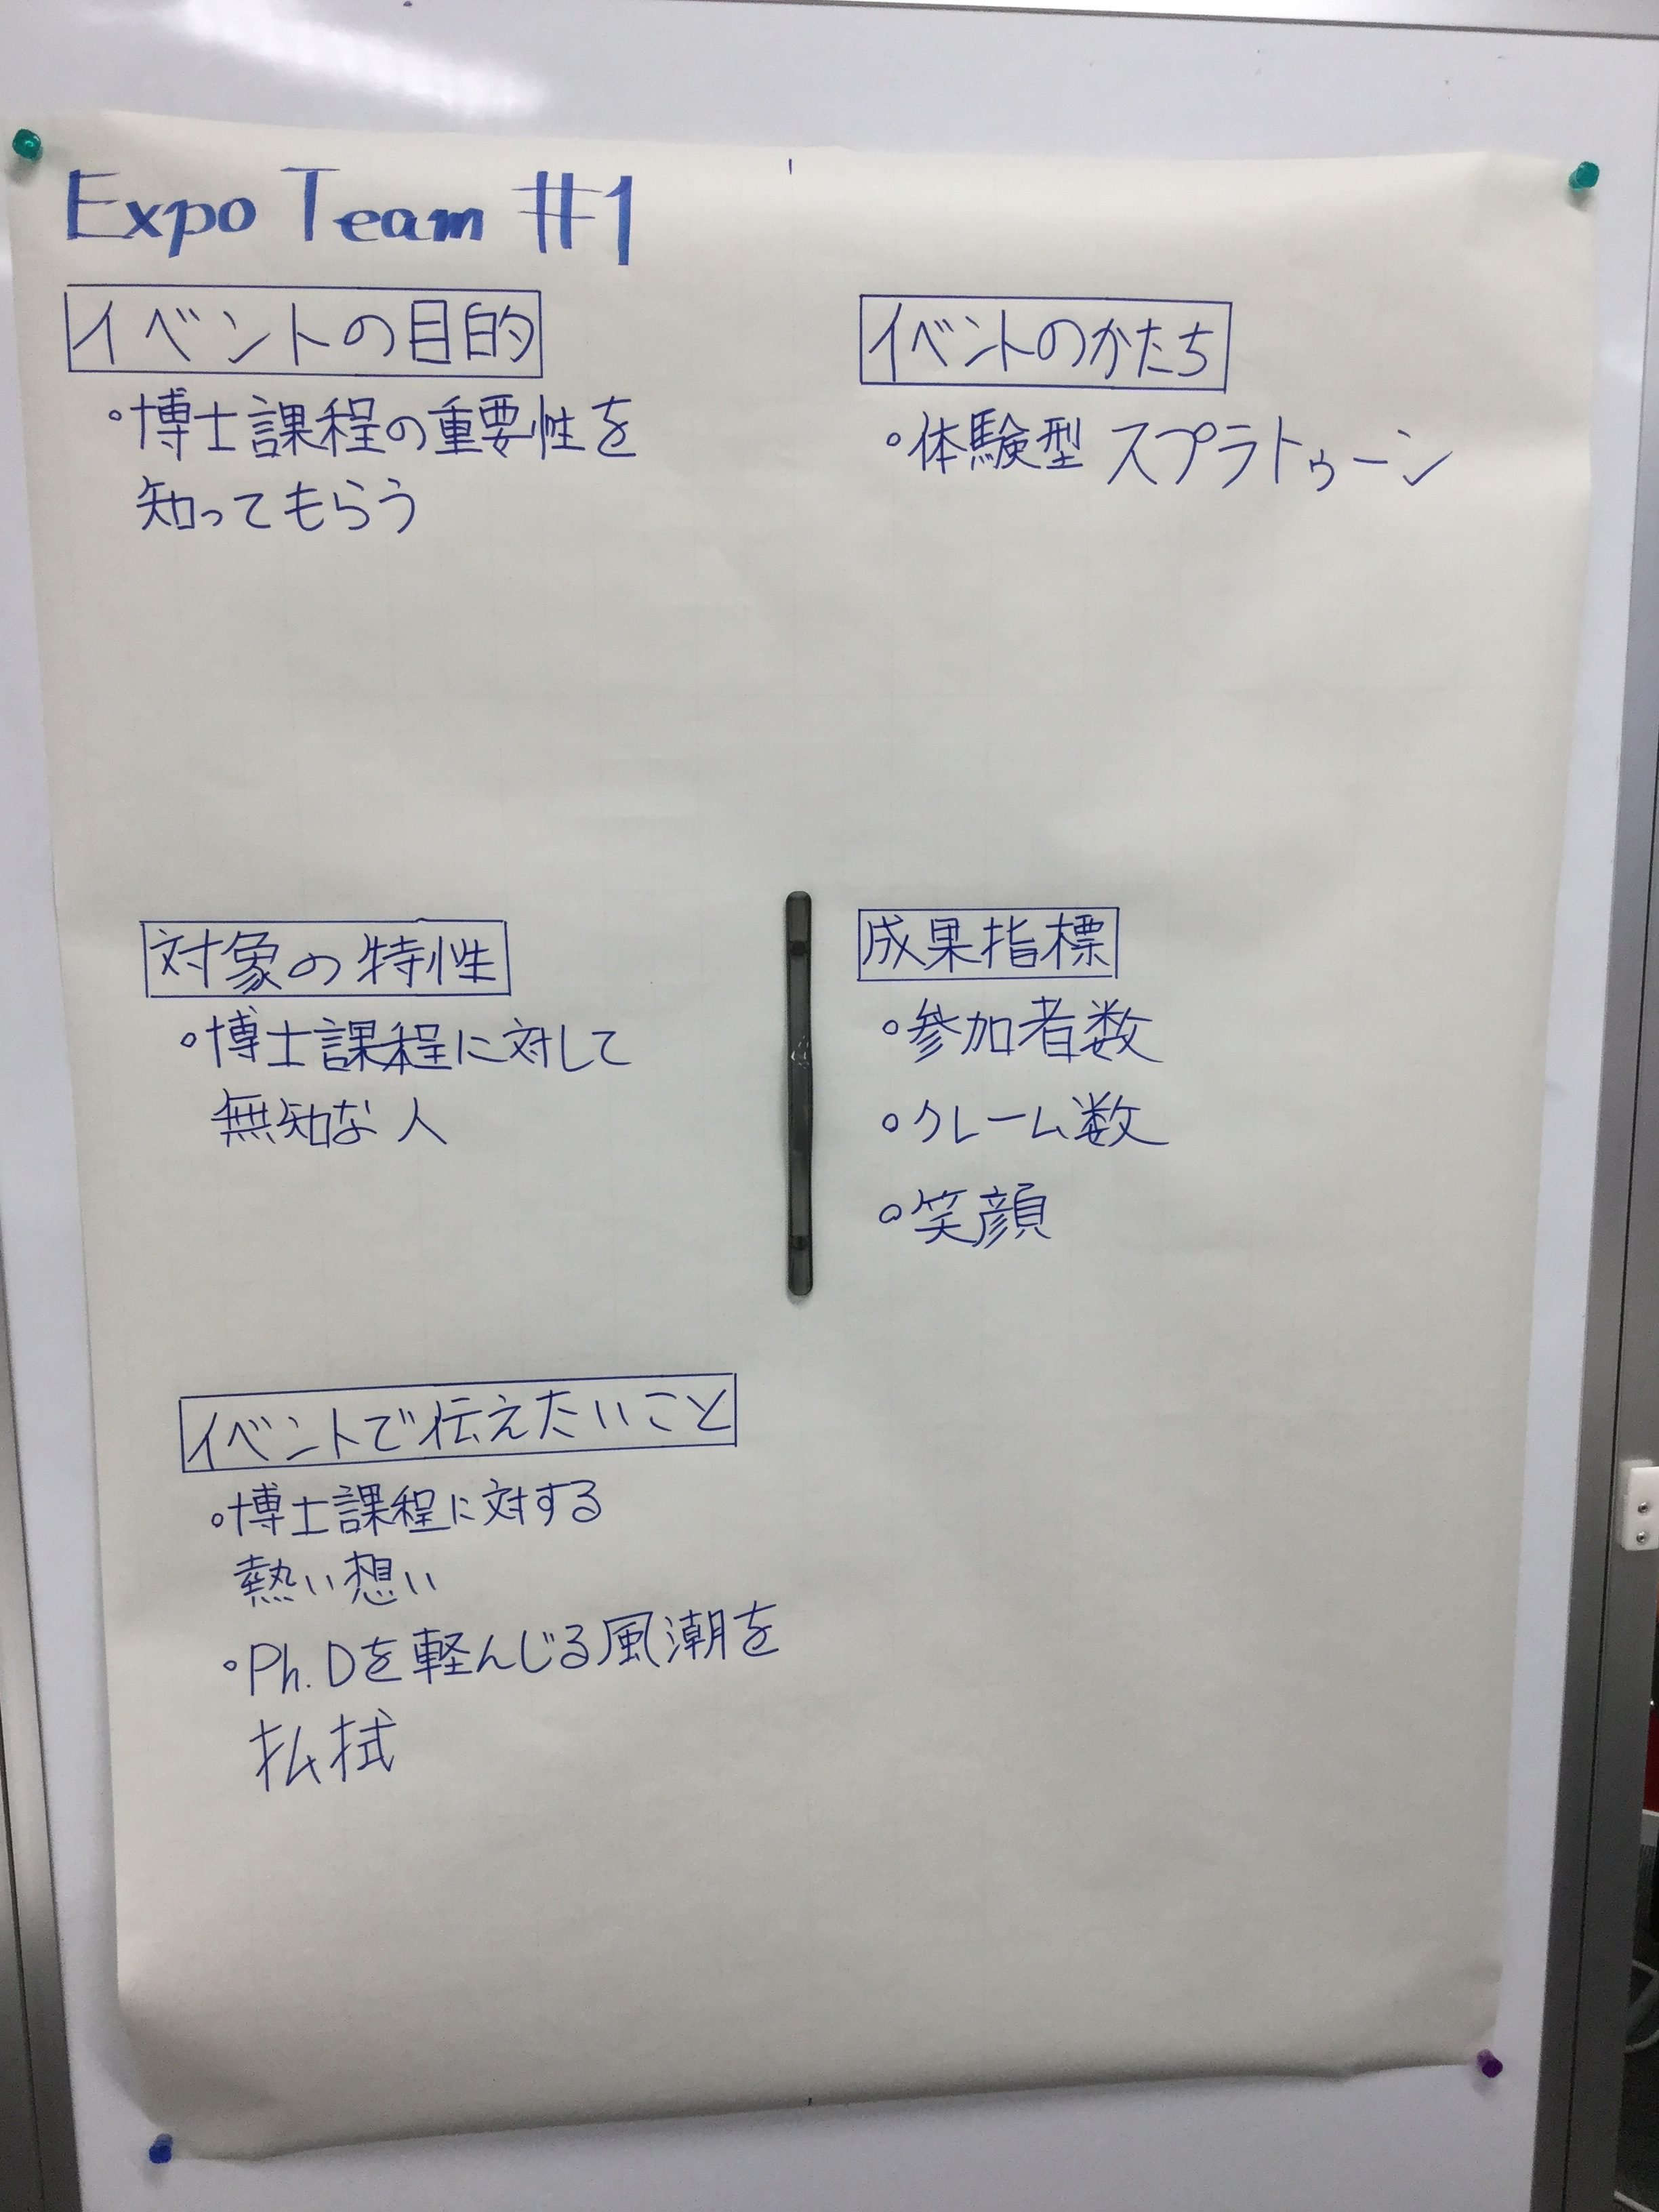 Expo Team #1
イベントの目的
・博士課程の重要性を
知ってもらう
対象の特性
・博士課程に対して
無知な人
イベントで伝えたいこと
・博士課程に対する
熱い想い
・Ph.Dを軽んじる風潮を
払拭
イベントのかたち
・体験型 スプラトゥーン
成果指標
・参加者数
・クレーム数
・笑顔